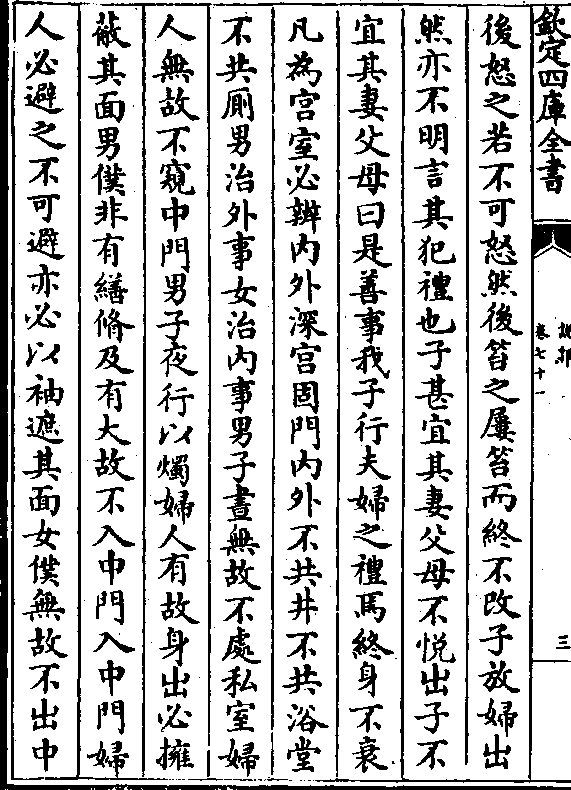 欽定四庫全書
說郛
卷七十一
三
後怒之若不可怒然後笞之屢笞而終不改子放婦出
然亦不明言其犯禮也子甚宜其妻父母不悅出子不
宜其妻父母曰是善事我子行夫婦之禮焉終身不衰
凡為宮室必辨內外深宮固門內外不共井不共浴堂
不共厠男治外事女治內事男子晝無故不處私室婦
人無故不窺中門男子夜行以燭婦人有故身出必擁
蔽其面男僕非有繕脩及有大故不入中門入中門婦
人必避之不可避亦必以袖遮其面女僕無故不出中